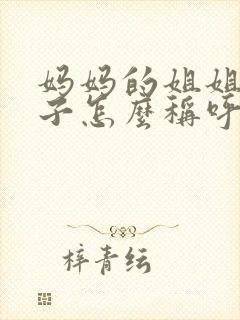 妈妈的姐姐
子怎麽稱呼
梓青纭